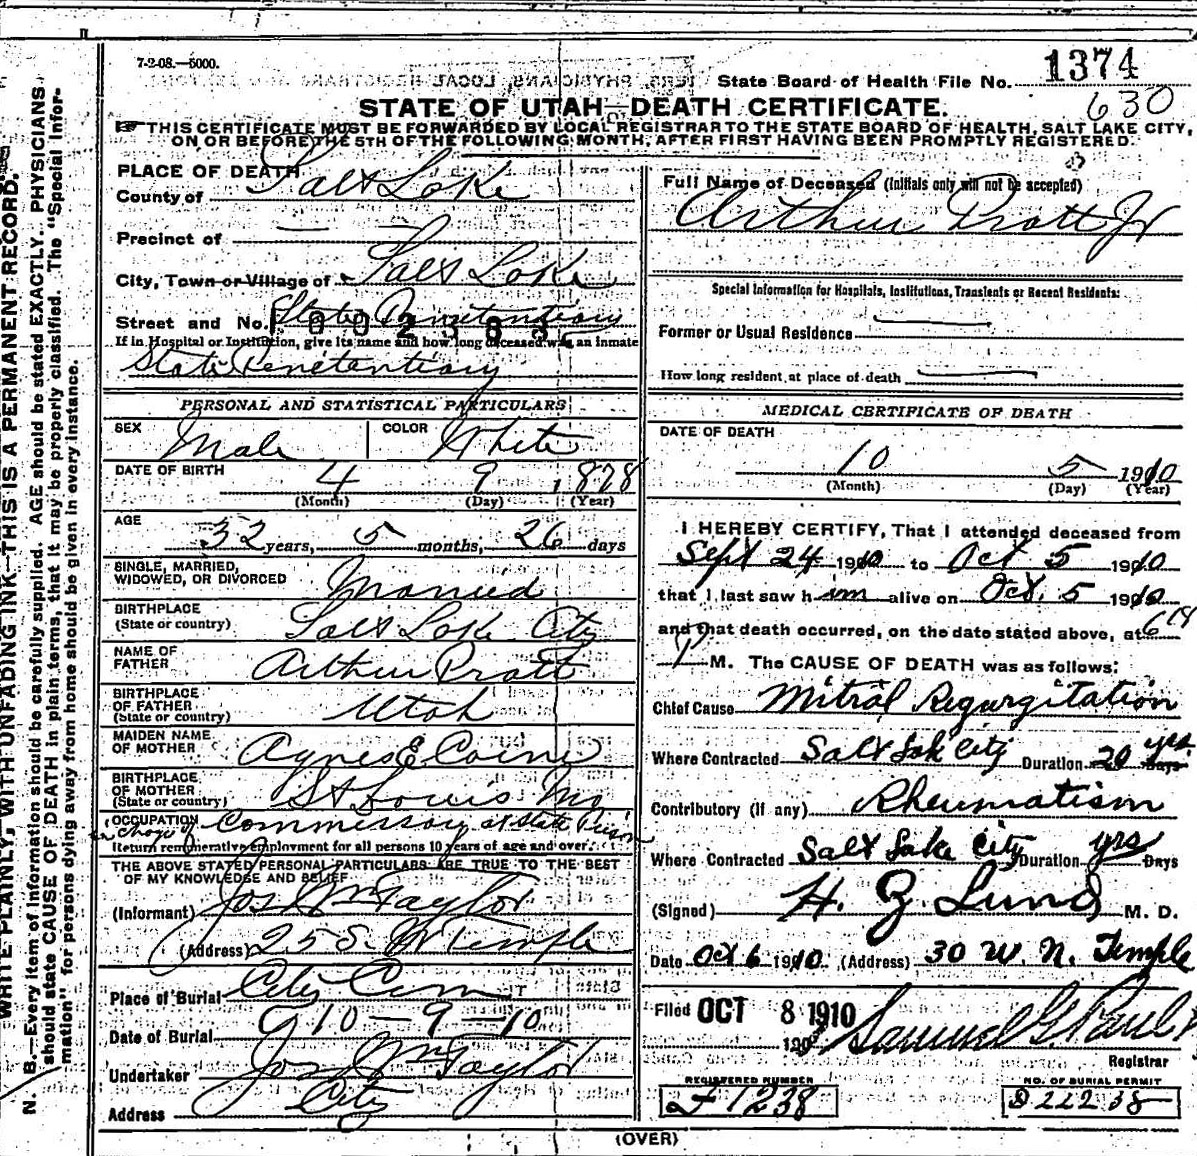 7-2-08.—5000.
State Board of Health File No. 1374
630
STATE OF UTAH—DEATH CERTIFICATE.
THIS CERTIFICATE MUST BE FORWARDED BY LOCAL REGISTRAR TO THE STATE BOARD OF HEALTH, SALT LAKE CITY,
ON OR BEFORE THE 5TH OF THE FOLLOWING MONTH, AFTER FIRST HAVING BEEN PROMPTLY REGISTERED.
WRITE PLAINLY, WITH UNFADING INK—THIS IS A PERMANENT RECORD.
N. B.—Every item of information should be carefully supplied. AGE should be stated EXACTLY. PHYSICIANS
should state CAUSE OF DEATH in plain terms, that it may be properly classified. The "Special Infor-
mation" for persons dying away from home should be given in every instance.
PLACE OF DEATH
County of Salt Lake
Precinct of
City, Town or Village of Salt Lake
Street and No. State Penetentiary
If in Hospital or Institution, give its name and how long deceased was an inmate
State Penetentiary
PERSONAL AND STATISTICAL PARTICULARS
SEX Male COLOR White
DATE OF BIRTH 4 9 1878
(Month) (Day) (Year)
AGE
32 years, 5 months, 26 days
SINGLE, MARRIED,
WIDOWED, OR DIVORCED Married
BIRTHPLACE
(State or country) Salt Lake City
NAME OF
FATHER Arthur Pratt
BIRTHPLACE
OF FATHER
(State or country) Utah
MAIDEN NAME
OF MOTHER Agnes E
BIRTHPLACE
OF MOTHER
(State or country) St Louis Mo
OCCUPATION
in charge of Commissary at State Prison
Return remunerative employment for all persons 10 years of age and over.
THE ABOVE STATED PERSONAL PARTICULARS ARE TRUE TO THE BEST
OF MY KNOWLEDGE AND BELIEF
(Informant) Jos Wm Taylor
(Address) 25 S. W Temple
Place of Burial City Cem
Date of Burial 10-9-10
Undertaker Jos Wm Taylor
Address City
Full Name of Deceased (Initials only will not be accepted)
Arthur Pratt Jr
Special Information for Hospitals, Institutions, Transients or Recent Residents:
Former or Usual Residence
How long resident at place of death
MEDICAL CERTIFICATE OF DEATH
DATE OF DEATH
10 5 1910
(Month) (Day) (Year)
I HEREBY CERTIFY, That I attended deceased from
Sept 24 1910 to Oct 5 1910
that I last saw him alive on Oct. 5 1910
and that death occurred, on the date stated above, at 6
M. The CAUSE OF DEATH was as follows:
Chief Cause Mitral Regurgitation
Where Contracted Salt Lak City Duration 20 yrs. Days
Contributory (if any) Rheumatism
Where Contracted Salt Lake City Duration yrs Days
(Signed) H. Z Lund M. D.
Date Oct 6 1910. (Address) 30 W. N. Temple
Filed OCT 8 1910
190 Samuel G. Paul
Registrar
REGISTERED NUMBER
1238
NO. OF BURIAL PERMIT
22238
(OVER)